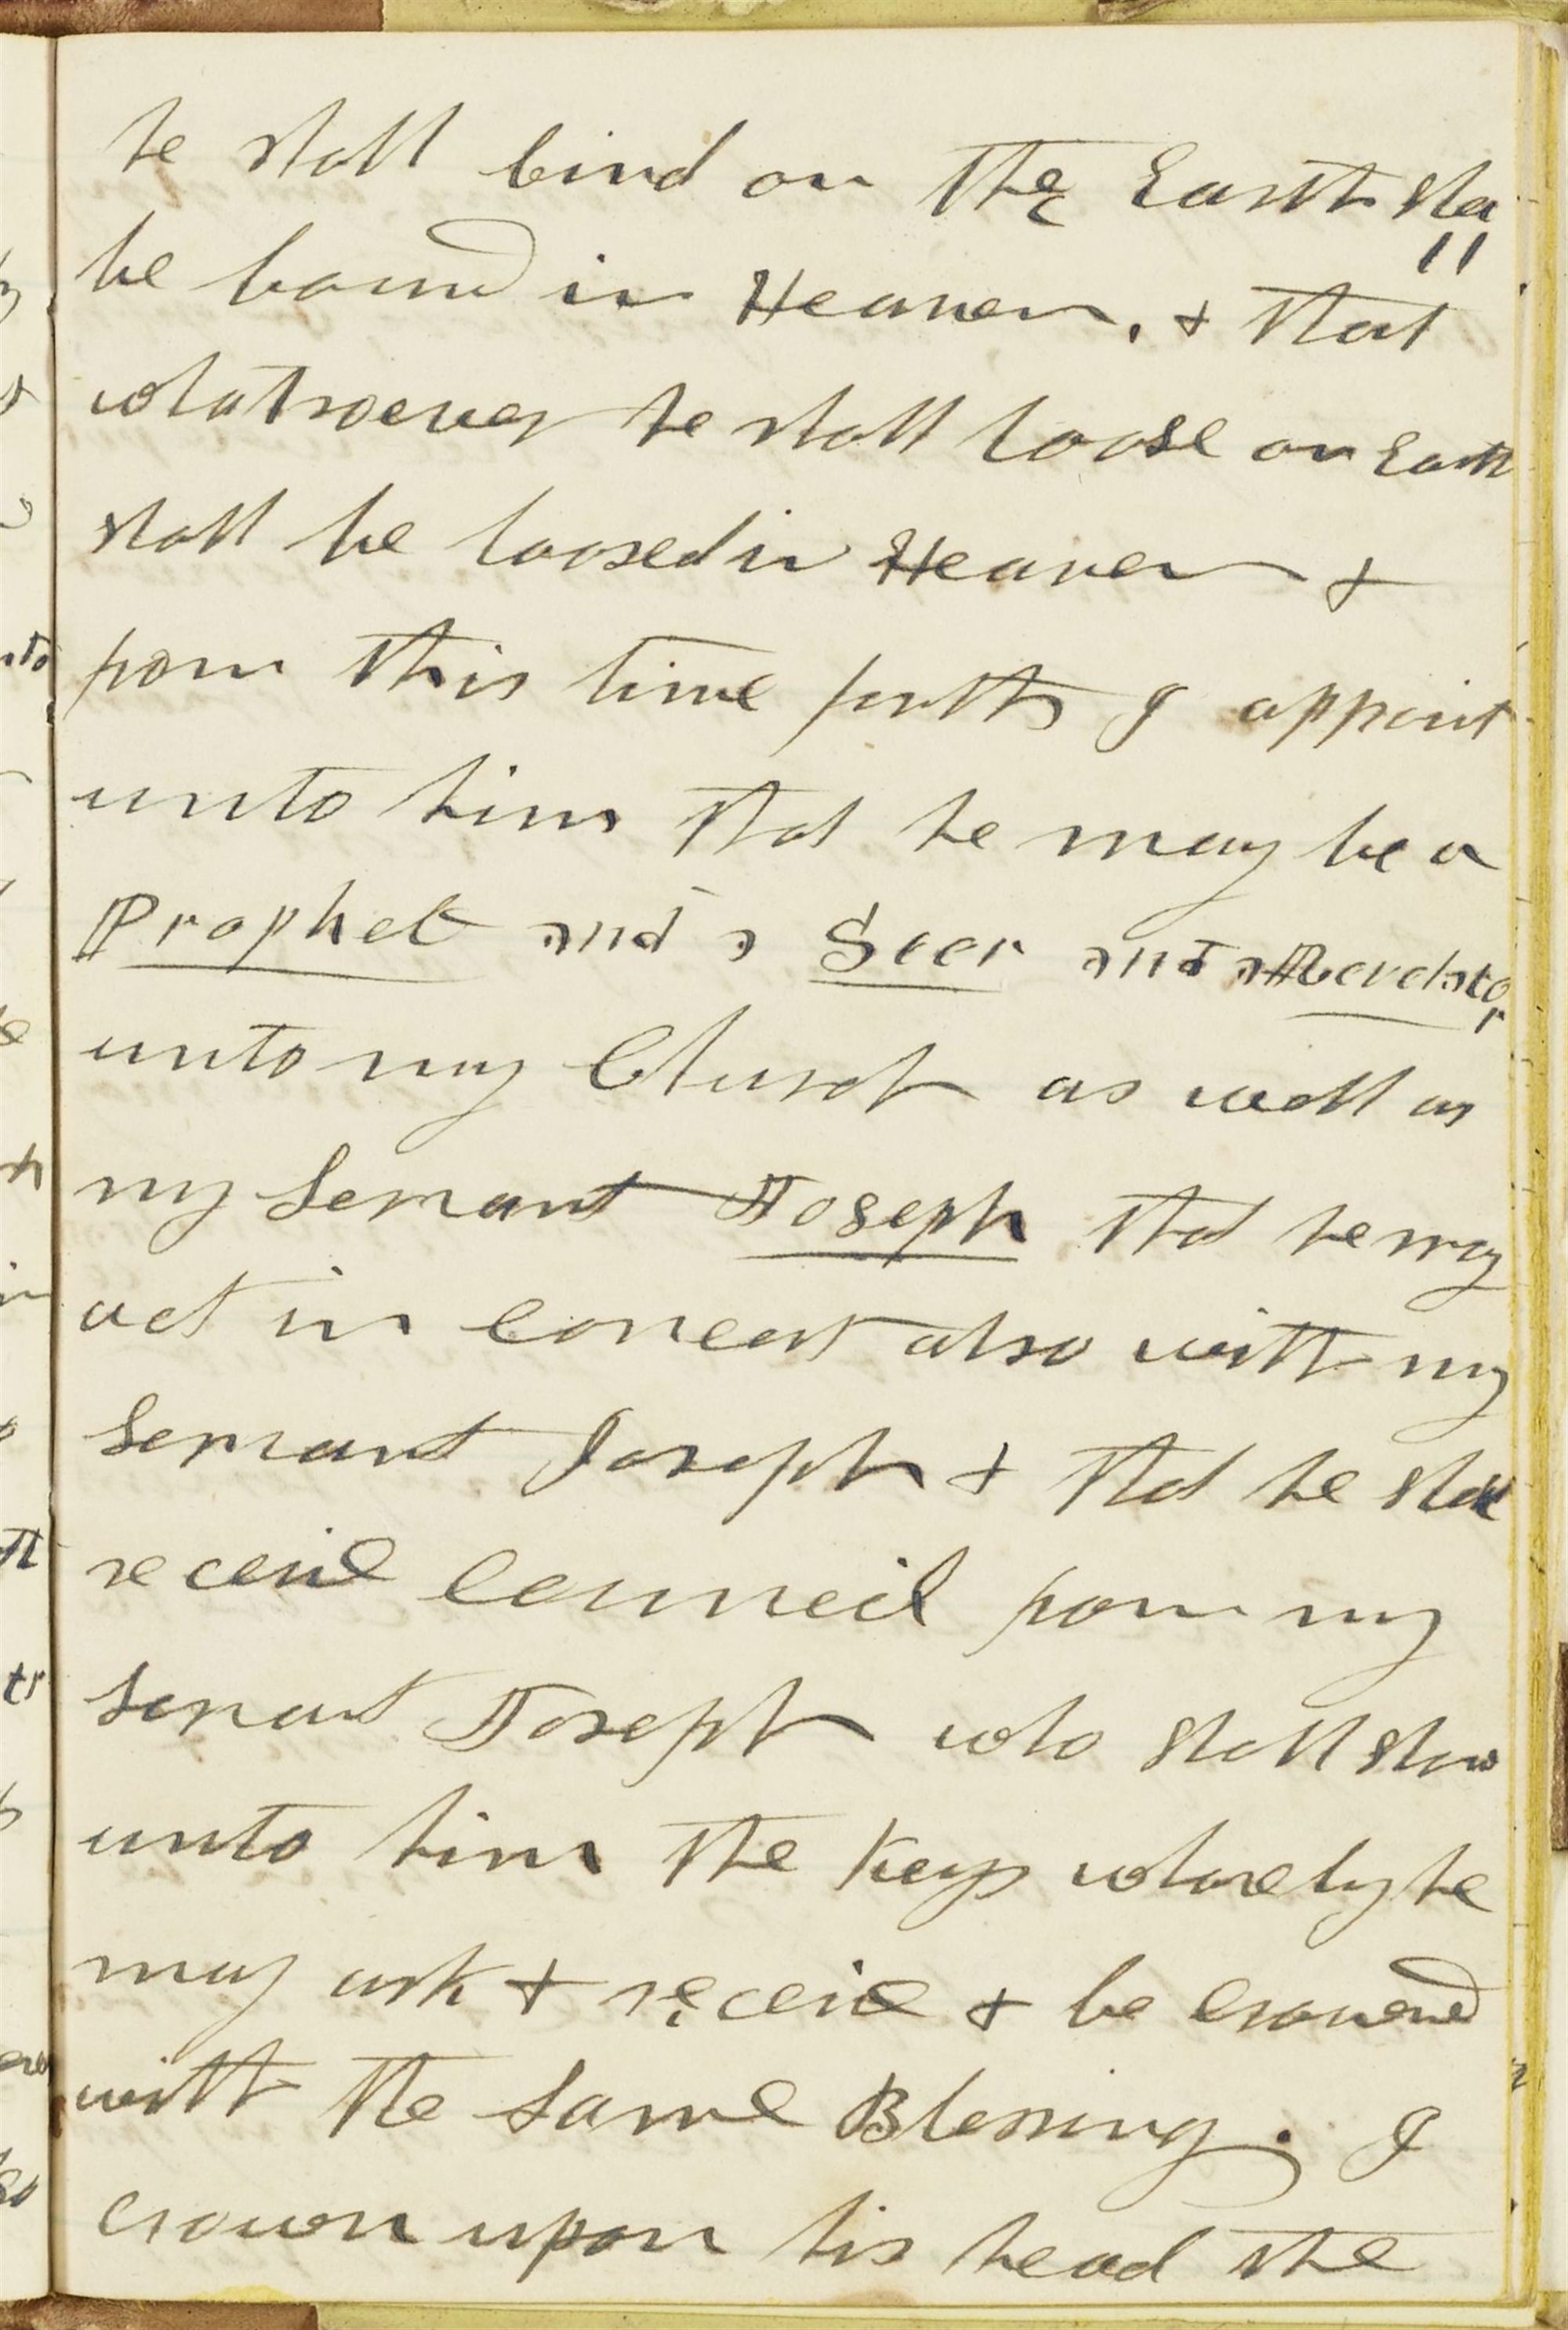 he shall bind on the Earth shall
be bound in Heaven, & that
whatsoever he shall loose on Earth
shall be loosed in Heaven &
from this time forth I appoint
unto him that he may be a
Prophet and a Seer and a Revelator
unto my Church as well as
my Servant Joseph that he may
act in concert also with my
Servant Joseph & that he shall
receive Council from my
servant Joseph who shall show
unto him the Keys whareby he
may ask & receive & be crowned
with the same Blessing. I
crown upon his head the